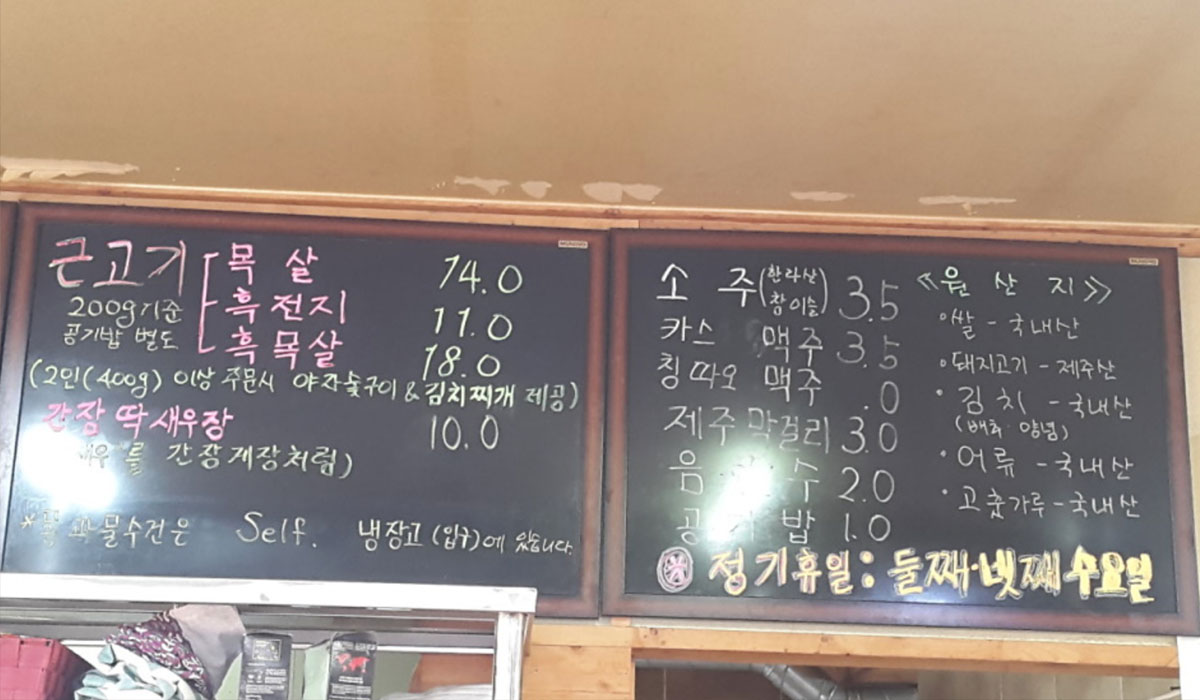 근고기 목살 14.0
200g기준 흑전지 11.0
공기밥 별도 흑목살 18.0
(2인(400g) 이상 주문시 야자숯구이 & 김치찌개 제공)
간장 딱새우장 10.0
간장게장처럼)
*물과 물수건은 Self. 냉장고(입구)에 있습니다.
소주(한라산 참이슬) 3.5
카스 맥주 3.5
칭따오 맥주 .0
제주 막걸리 3.0
음 수 2.0
공기밥 1.0
<<원산지>>
쌀 - 국내산
돼지고기 - 제주산
김치 - 국내산
(배추·양념)
어류 - 국내산
고춧가루 - 국내산
정기휴일 : 둘째·넷째 수요일